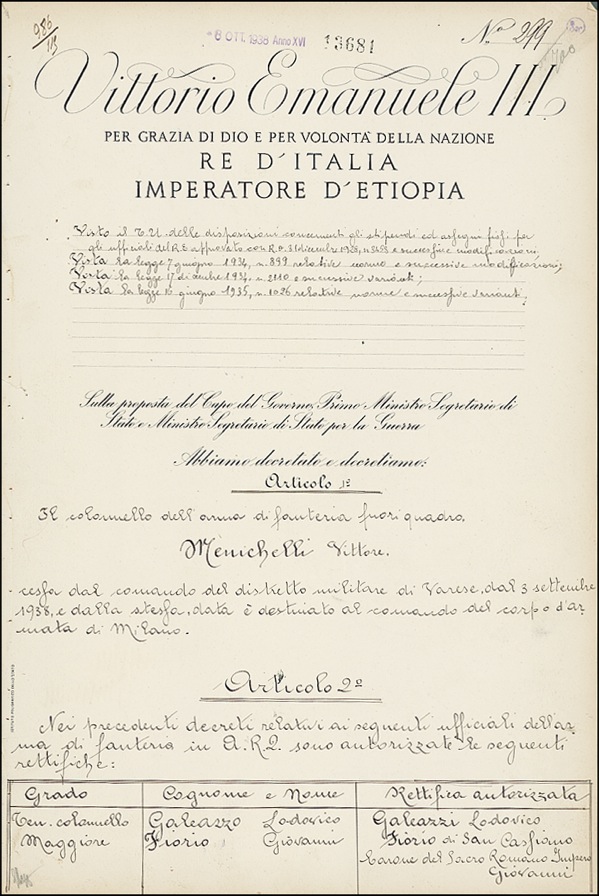 986/113
*8 OTT. 1938 Anno XVI 13681 No 299
Vittorio Emanuele III
PER GRAZIA DI DIO E PER VOLONTA DELLA NAZIONE
RE D'ITALIA
IMPERATORE D'ETIOPIA
Visto il T.U. delle disposizioni concernenti gli stipendi ed assegni fissi per
gli ufficiali del R.E approvato con R.D. 31 dicembre 1928, n. 3458 e successive modificazioni;
Vista la legge 7 giugno 1934, n. 899 relative norme e successive modificazioni;
Vista la legge 17 dicembre 1934, n. 2110 e successive varianti;
Vista la legge 10 giugno 1935, n. 1026 relative norme e successive varianti.
Sulla proposta del Capo del Governo, Primo Ministro Segretario di
Stato e Ministro Segretario di Stato per la Guerra
Abbiamo decretato e decretiamo:
Articolo 1º
Il colonnello dell'arma di fanteria fuori quadro.
Menichelli Vittore.
cessa dal comando del distretto militare di Varese, dal 3 settembre
1938, e dalla stessa, data è destinato al comando del corpo d'ar-
mata di Milano.
Articolo 2º
Nei precedenti decreti relativi ai seguenti ufficiali dell'ar-
ma di fanteria in A.R.Q. sono autorizzate le seguenti
rettifiche:
Grado Cognome e Nome Rettifica autorizzata
Ten. colonnello Galeazzo Lodovico Galeazzi Lodovico
Maggiore Fiorio Giovanni Fiorio di San Cassiano
Barone del Sacro Romano Impero
Giovanni